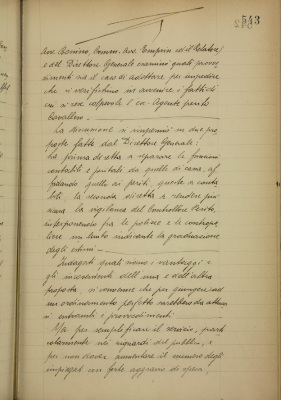 543
Avv. Bonino, Comm. Avv. Temprin ed il Relatore
e del Direttore Generale esamini quali provve
dimenti sia il caso di adottare per impedire
che si verifichino in avvenire i fatti di
cui si rese colpevole l'ex-Agente perito
Cavallero.
La discussione si riassume in due pro
poste fatte dal Direttore Generale:
La prima diretta a separare le funzioni
contabili e peritali da quelle di cassa, af
fidando quelle ai periti, queste a conta
bili, la seconda diretta a rendere più
piana la vigilanza del Controllore Perito,
interponendo fra le polizze e le contropo
lizze un limite indicante la graduazione
degli estimi.
Indagati quali siano i vantaggi e
gli inconvenienti dell'una e dell'altra
proposta si conviene che per giungere ad
un ordinamento perfetto sarebbero da attuar
si entrambi i provvedimenti.
Ma per semplificare il servizio, parti
colarmente nei riguardi del pubblico, e
per non dover aumentare il numero degli
impiegati con forte aggravio di spesa,